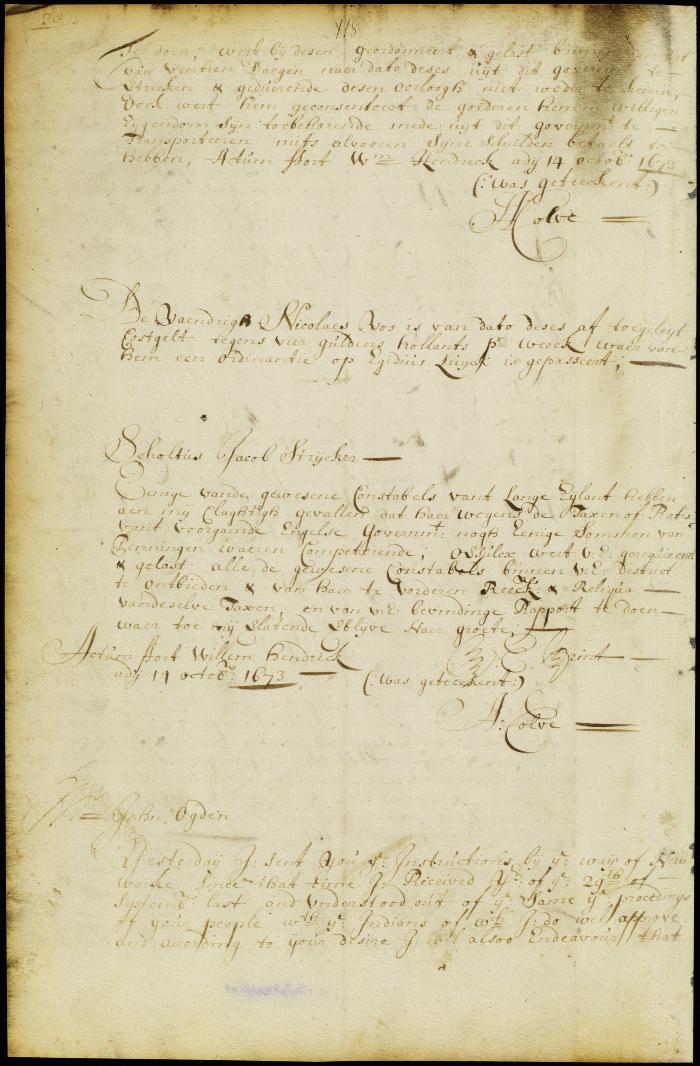 118
Te doen, wert by desen geordonneert & gelast binnen
van veertien Daegen naer dato deses uyt dit te
& geduerende desen oorlogh niet weder te keeren,
Oock wert hem geconsenteert de goederen hem in
Eijgendom syn toebehorende mede uijt dit governmt te —
Transporteeren mits alvooren syne schulden betaelt te
hebben, Actum ffort Wm Hendrick ady 14 octobr 1673
(: was geteeckent :)
A Colve
De Vaendrigh Nicolaes Vos is van dato deses af toegeleijt
Costgelt tegens vier guldens hollants pr weeck, waer van
hem een ordinantie op Egidius Luyck is gepasseert; —
Scholtus Jacob Strycker —
Eenige vande gewesene Constabels vant Lange Eylant hebben
aen mij Claghtigh gevallen dat haer wegens de Taxen of Rates
vant voorgaende Engelse Governmt: nogh Eenige Sommen van
Penningen waeren Competerende; wert v:E:
& gelast alle de gewesene Constabels binnen v:E: district
te ontbieden & van haer te vorderen Reeck: & Reliqua —
vandeselve Taxen, en van v:E: bevindinge Rapport te doen —
waer toe mij verlatende blyve naer groete, —
Actum ffort Willem Hendrick
ady 14 octobr: 1673 —
(: was geteeckent :)
A: Colve
Mr John Ogden
Yesterday J: sent you ye: Jnstructions by ye: way of New
Yorke since that time J: Received yrs: of ye: 29th of
Septemb last and understood out of ye: same ye proceedings
of your people wth ye: Jndians of wch J do wel approve
and according to your desire J: wil alsoo Endeavour that